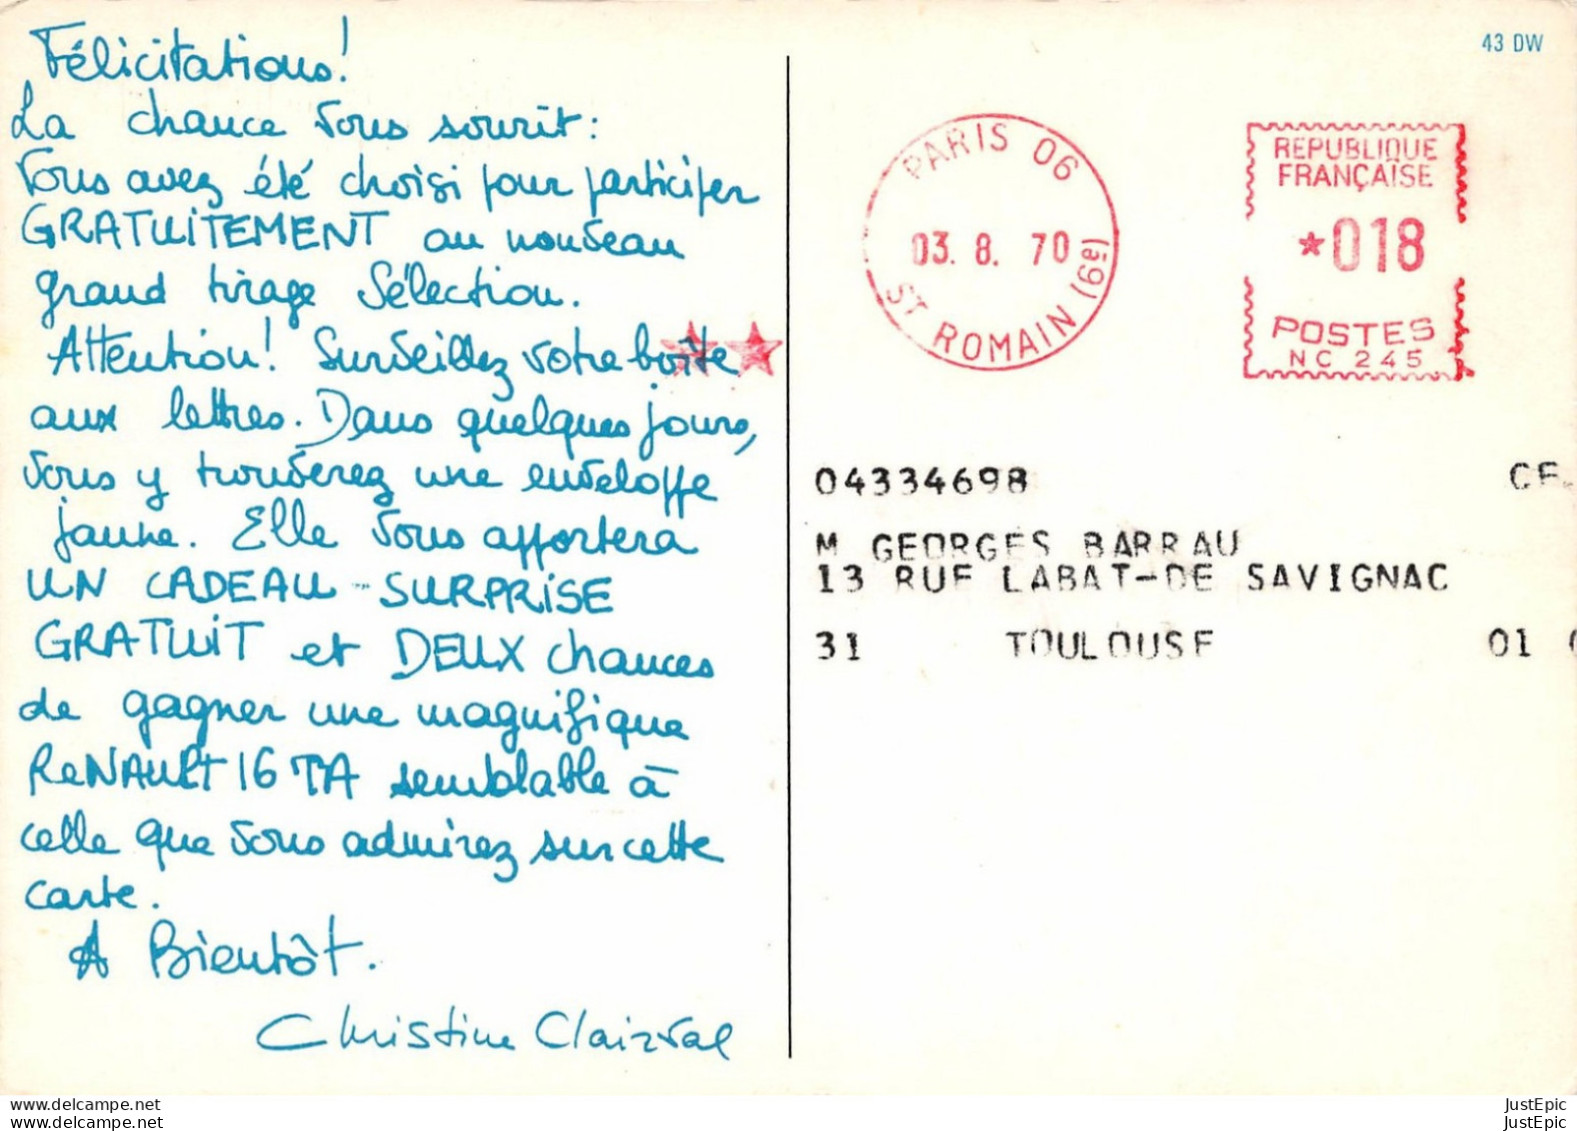 Félicitations!
La chance vous sourit:
Vous avez été choisi pour participer
GRATUITEMENT au nouveau
grand tirage Sélection.
Attention! Surveillez votre boîte
aux lettres. Dans quelques jours,
vous y trouverez une enveloppe
jaune. Elle vous apportera
UN CADEAU-SURPRISE
GRATUIT et DEUX chances
de gagner une magnifique
ReNAULT 16 TA semblable à
celle que vous admirez sur cette
carte.
A Bientôt.
Christine Clairval
43 DW
PARIS 06
03. 8. 70
ST ROMAIN (6e)
REPUBLIQUE
FRANÇAISE
*018
POSTES
NC 245
04334698 CE
M GEORGES BARRAU
13 RUE LABAT-DE SAVIGNAC
31 TOULOUSE 01
JustEpic
www.delcampe.net JustEpic
www.delcampe.net